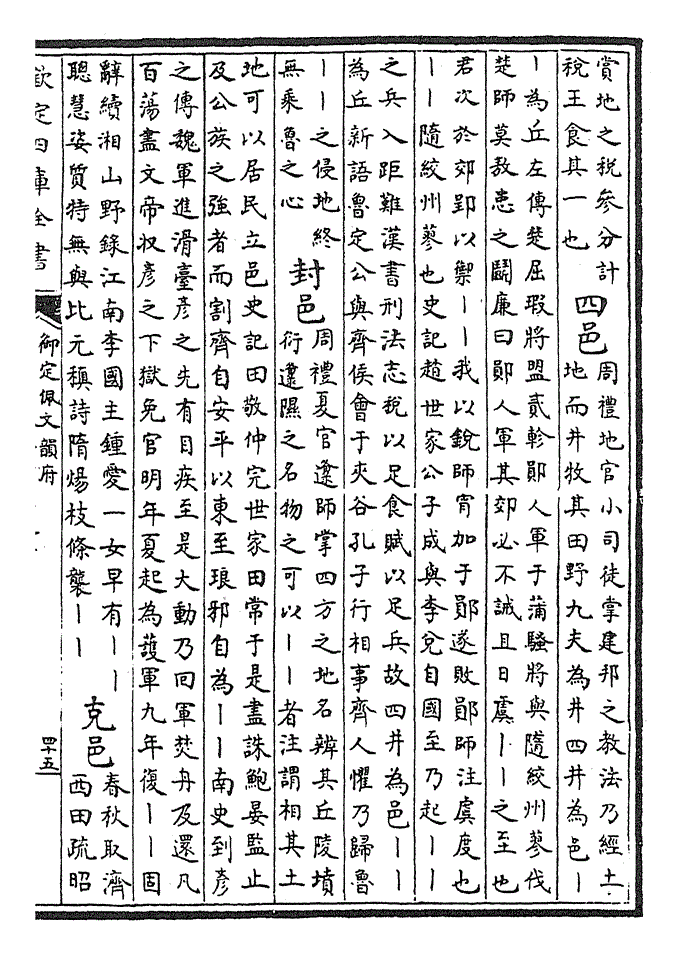 賞地之稅參分計
稅王食其一也
四邑
周禮地官小司徒掌建邦之教法乃經土
地而井牧其田野九夫為井四井為邑丨
丨為丘左傳楚屈瑕將盟貳軫鄖人軍于蒲騷將與隨絞州蓼伐
楚師莫敖患之鬭廉曰鄖人軍其郊必不誡且日虞丨丨之至也
君次於郊郢以禦丨丨我以銳師宵加于鄖遂敗鄖師注虞度也
丨丨隨絞州蓼也史記趙世家公子成與李兌自國至乃起丨丨
之兵入距難漢書刑法志稅以足食賦以足兵故四井為邑丨丨
為丘新語魯定公與齊侯會于夾谷孔子行相事齊人懼乃歸魯
丨丨之侵地終
無乘魯之心
封邑
周禮夏官邍師掌四方之地名辨其丘陵墳
衍邍隰之名物之可以丨丨者注謂相其土
地可以居民立邑史記田敬仲完世家田常于是盡誅鮑晏監止
及公族之強者而割齊自安平以東至琅邪自為丨丨南史到彥
之傳魏軍進滑臺彥之先有目疾至是大動乃回軍焚舟及還凡
百蕩盡文帝收彥之下獄免官明年夏起為護軍九年復丨丨固
辭續湘山野錄江南李國主鍾愛一女早有丨丨
聰慧姿質特無與比元稹詩隋煬枝條襲丨丨
克邑
春秋取濟
西田疏昭
欽定四庫全書
御定佩文韻府
四十五